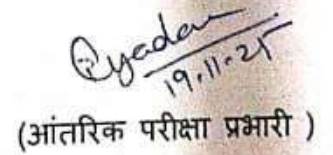 Pyadav
19.11.25
(आंतरिक परीक्षा प्रभारी )